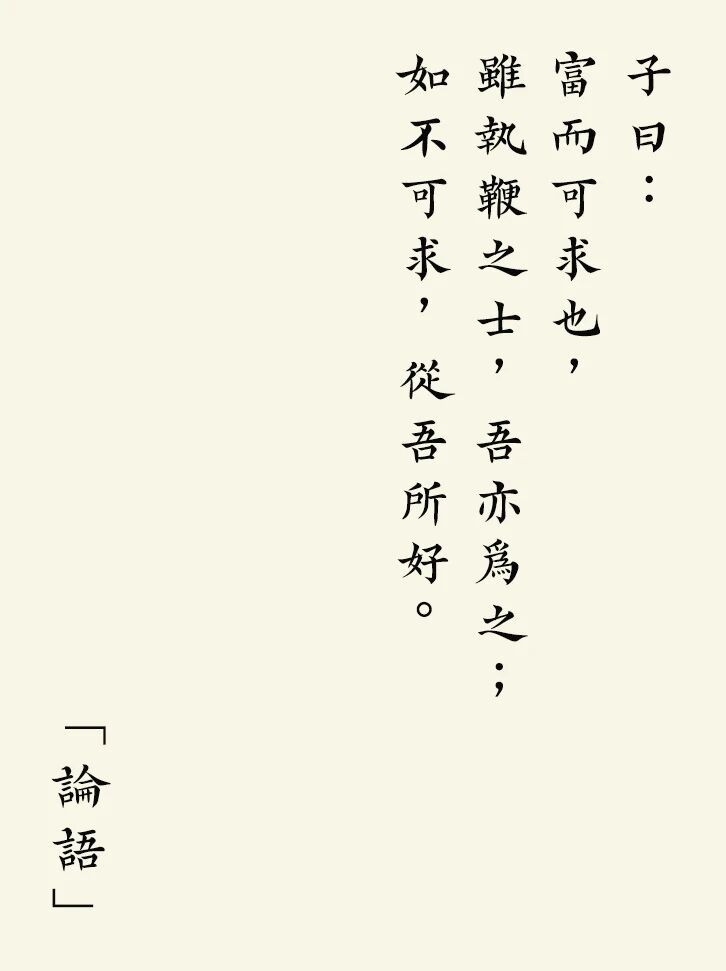 子曰：
富而可求也，
雖執鞭之士，吾亦爲之；
如不可求，從吾所好。
「論語」